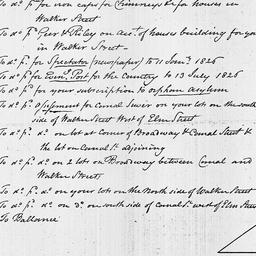 To do. pd. for iron caps for Chimneys &c for houses in
Walker Street
To do. pd. Geer & Riley on acct. of houses building for you
in Walker Street
To do. pd. for Spectator (newspaper) to 11 June 1826
To do. pd. for Eveng. Post for the Country to 13 July 1826
To do. pd. for your subscription to orphan asylum
To do. pd. assessment for Canal Sewer on your lots on the south
side of Walker Street West of Elm Street
To do. pd. do. on lot at Corner of Broadway & Canal Street &
the lot on Canal St. adjoining
To do. pd. do. on 2 lots on Broadway between Canal and
Walker Streets
To do. pd. do. on your lots on the North side of Walker Street
To do. pd. do. on do. on south side of Canal St. west of Elm Street
To Ballance